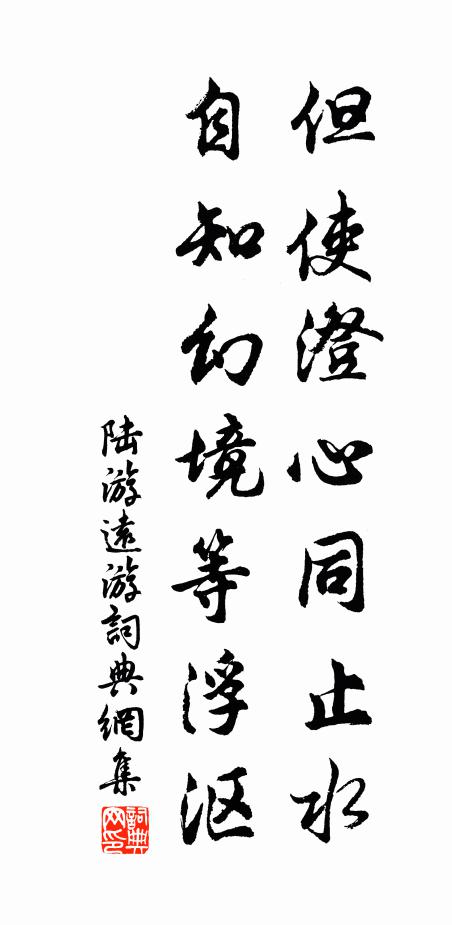 但使澄心同止水
自知幻境等浮沤
陆游遠游詞典網集
詞典
网印